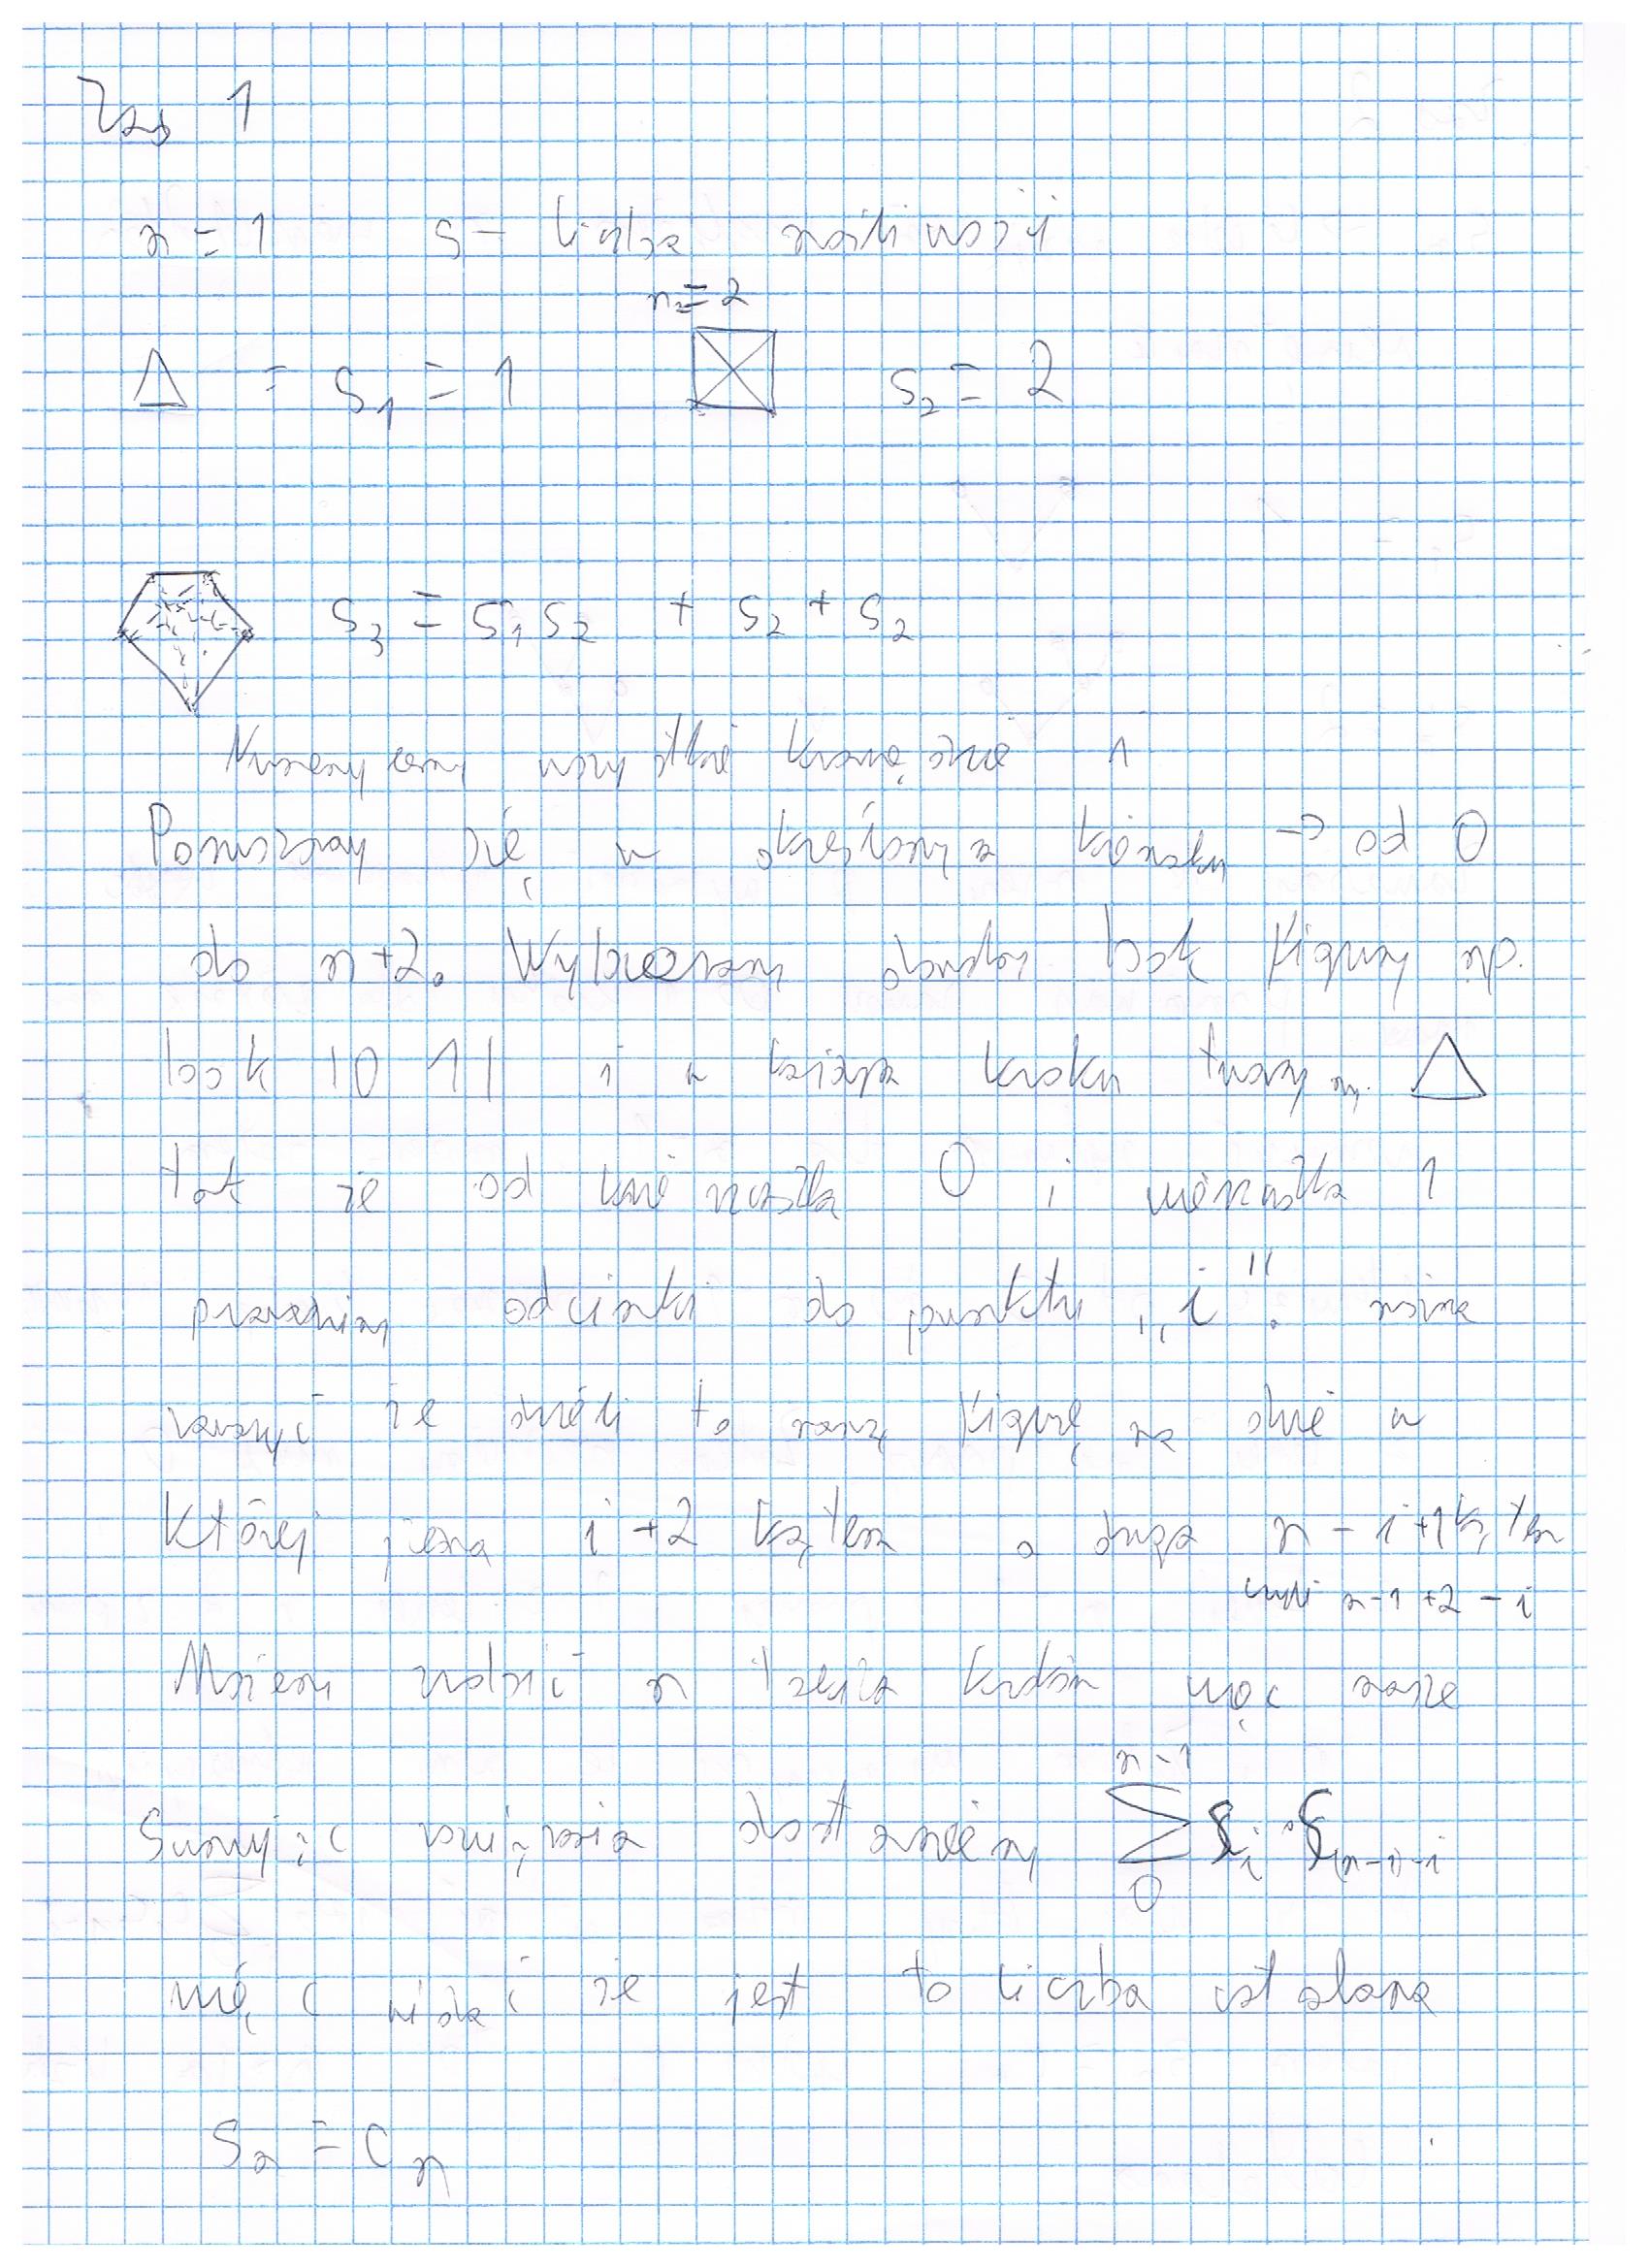 Zad 1
n = 1 s - liczba możliwości
n = 2
△ = S₁ = 1 S₂ = 2
S₃ = S₁S₂ + S₂ + S₂
Numerujemy wszystkie krawędzie
Poruszamy się w określonym kierunku → od 0
do n+2. Wybieramy dowolny bok figury np.
bok |0 1| i w każdym kroku tworzymy △
tak że od wierzchołka 0 i wierzchołka 1
prowadzimy odcinki do punktu „i". można
zauważyć że dzieli to naszą figurę na dwie w
której jedna i+2 kątem a druga n-i+1 kątem
czyli n-1+2-i
Możemy zrobić n kroków więc nasze
Sumując rozwiązania dostaniemy n-1 Σ 0 Sᵢ · S₍ₙ₋₁₎₋ᵢ
więc widać że jest to liczba catalana
Sₙ = Cₙ